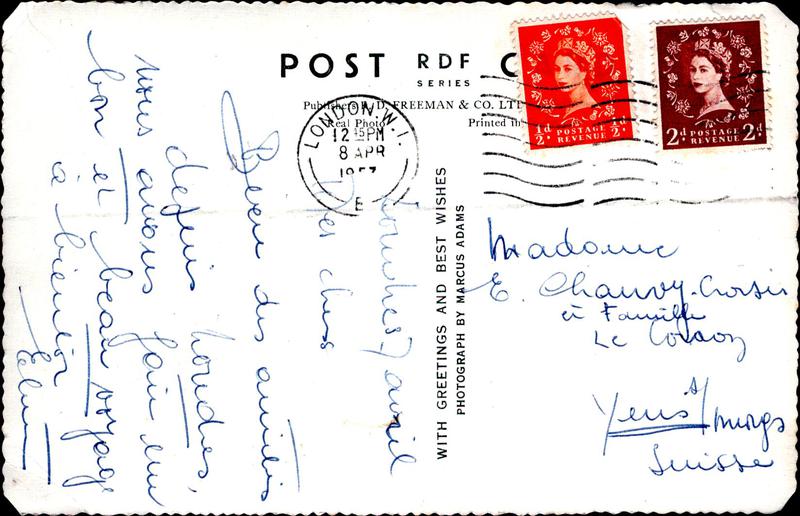 POST RDF C
SERIES
Publishers D. FREEMAN & CO. LT
Real Photo
Printed in
LONDON.W.1.
12 45 PM
8 APR
1957
E
½ᵈ POSTAGE ½ᵈ
REVENUE
2ᵈ POSTAGE 2ᵈ
REVENUE
WITH GREETINGS AND BEST WISHES
PHOTOGRAPH BY MARCUS ADAMS
Londres, 7 avril
Mes chers
Bien des amitiés
depuis Londres,
nous avons fait un
bon et beau voyage
à bientôt
Madame
E. Chauvy-Croisier
et Famille
Le
Yens s/ Morges
Suisse